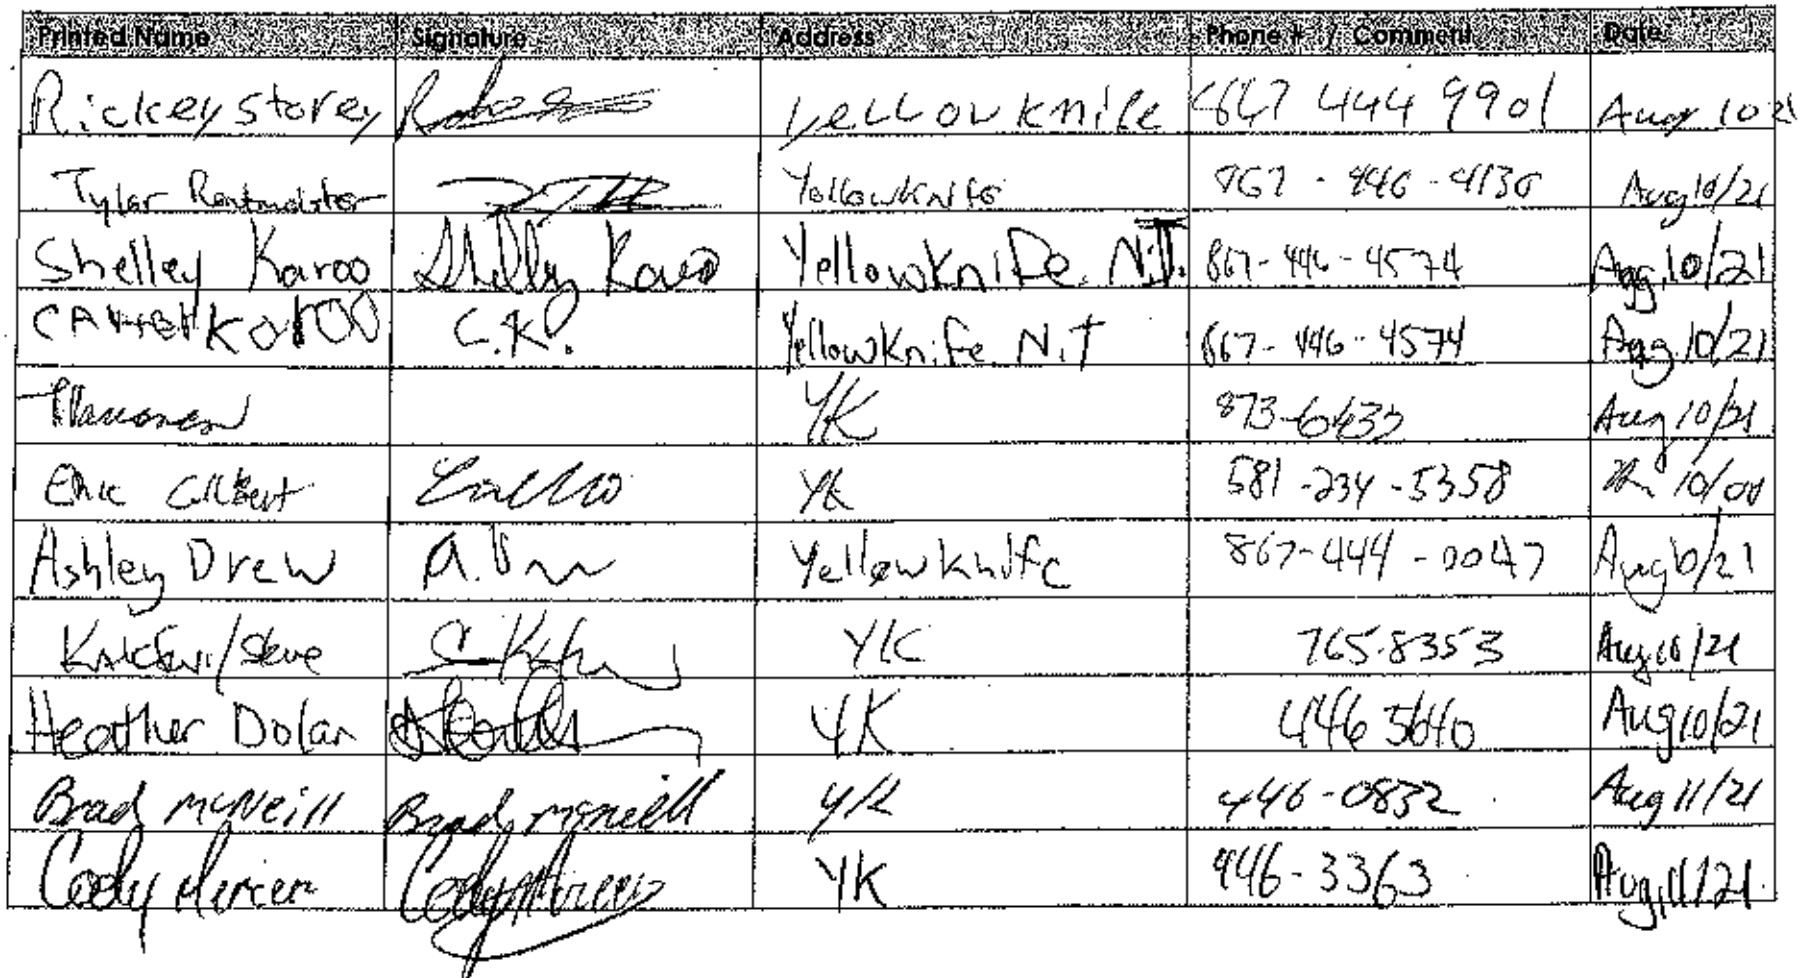 Printed Name Signature Address Phone # / Comment Date
Rickey Storey Yellowknife 867 444 9901 Aug 10 21
Tyler Yellowknife 867 - 446 - 4130 Aug 10/21
Shelley Karoo Shelly Karoo Yellowknife. N.T. 867-446-4574 Aug 10/21
Karoo C.K. Yellowknife N.T 867-446-4574 Aug 10/21
YK 873-6433 Aug 10/21
Eric Gilbert YK 581-234-5358 10/08
Ashley Drew A. Yellowknife 867-444-0047 Aug 10/21
/Steve YK 765-8353 Aug 10/21
Heather Dolan YK 446 5640 Aug 10/21
Brad McNeill Brad McNeill YK 446-0832 Aug 11/21
Cody Mercer Cody Mercer YK 446-3363 Aug 11/21